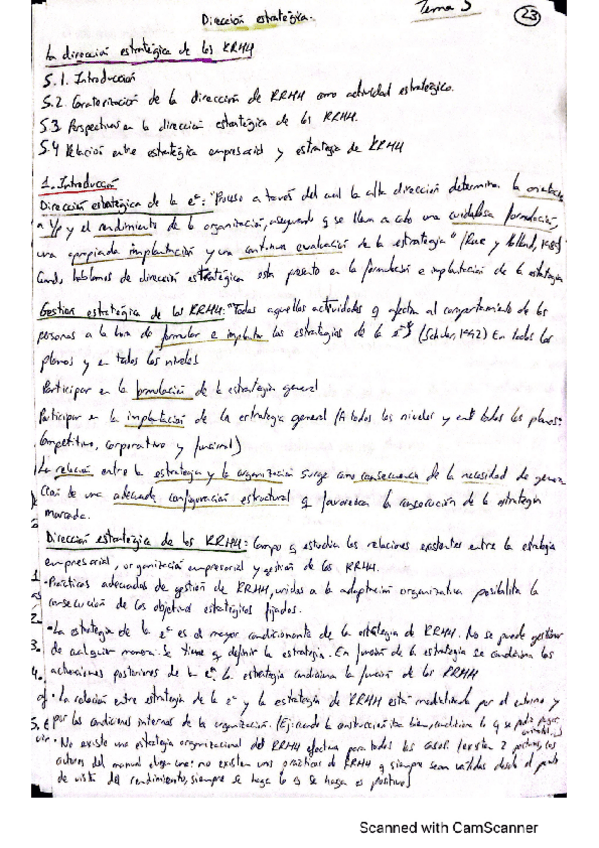 Dirección estratégica.
Tema 5
23
La dirección estratégica de los RRHH
5.1. Introducción
5.2. Caraterización de la dirección de RRHH como actividad estratégica.
5.3 Perspectivas en la dirección estratégica de los RRHH.
5.4 Relación entre estratégica empresarial y estrategia de RRHH
1. Introducción
Dirección estratégica de la eª: "Proceso a través del cual la alta dirección determina la
a l/p y el rendimiento de la organización, asegurando q se lleva a cabo una cuidadosa formulación,
una apropiada implantación y una continua evaluación de la estrategia"
Cuando hablamos de dirección estratégica esta presente en la formulación e implantación de la estrategia
Gestion estratégica de los RRHH: "Todas aquellas actividades q afectan al comportamiento de las
personas a la hora de formular e implantar las estrategias de la eª" (Schuler, 1992) En todos los
planos y en todos los niveles
Participar en la formulación de la estrategia general
Participar en la implantación de la estrategia general (A todos los niveles y en todos los planos:
Competitivo, corporativo y funcional)
La relación entre la estrategia y la organización surge como consecuencia de la necesidad de
de una adecuada configuración estructural q favorezca la consecución de la estrategia
marcada.
Dirección estratégica de los RRHH: Campo q estudia las relaciones existentes entre la estrategia
empresarial, organización empresarial y gestión de los RRHH.
· Prácticas adecuadas de gestión de RRHH, unidas a la adaptación organizativa posibilita la
consecución de los objetivos estratégicos fijados.
· La estrategia de la eª es el mayor condicionante de la estrategia de RRHH. No se puede gestionar
de cualquier manera. Se tiene q definir la estrategia. En función de la estrategia se condiciona las
actuaciones posteriores de la eª. la estrategia condiciona la función de los RRHH
· La relación entre estrategia de la eª y la estrategia de RRHH está mediatizada por el entorno y
por las condiciones internas de la organización. (Ej: cuando la construcción iba bien, condiciona lo q se podía pagar
· No existe una estrategia organizacional del RRHH efectiva para todos los casos. (existen 2 posturas, los
autores del manual eligen una: no existen unas prácticas de RRHH q siempre sean válidas desde el punto
de vista del rendimiento, siempre se haga lo q se haga es positivo)
Scanned with CamScanner